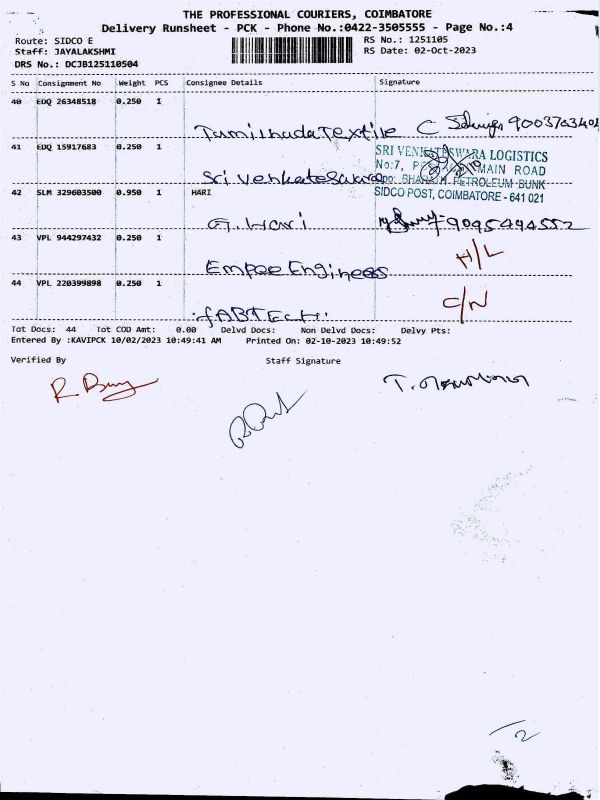 THE PROFESSIONAL COURIERS, COIMBATORE
Delivery Runsheet - PCK - Phone No.:0422-3505555 - Page No.:4
Route: SIDCO E RS No.: 1251105
Staff: JAYALAKSHMI RS Date: 02-Oct-2023
DRS No.: DCJB125110504
S No Consignment No Weight PCS Consignee Details Signature
40 EDQ 26348518 0.250 1
Tamilnadu Textile
41 EDQ 15917683 0.250 1 SRI VENKATESWARA LOGISTICS
No:7, MAIN ROAD
Sri Venkateswara Opp: BHARATH PETROLEUM BUNK
42 SLM 329603500 0.950 1 HARI SIDCO POST, COIMBATORE - 641 021
G. Hari 9095494552
43 VPL 944297432 0.250 1 H/L
Empee Engineers
44 VPL 220399898 0.250 1 C/N
fABTEch.
Tot Docs: 44 Tot COD Amt: 0.00 Delvd Docs: Non Delvd Docs: Delvy Pts:
Entered By :KAVIPCK 10/02/2023 10:49:41 AM Printed On: 02-10-2023 10:49:52
Verified By Staff Signature
2